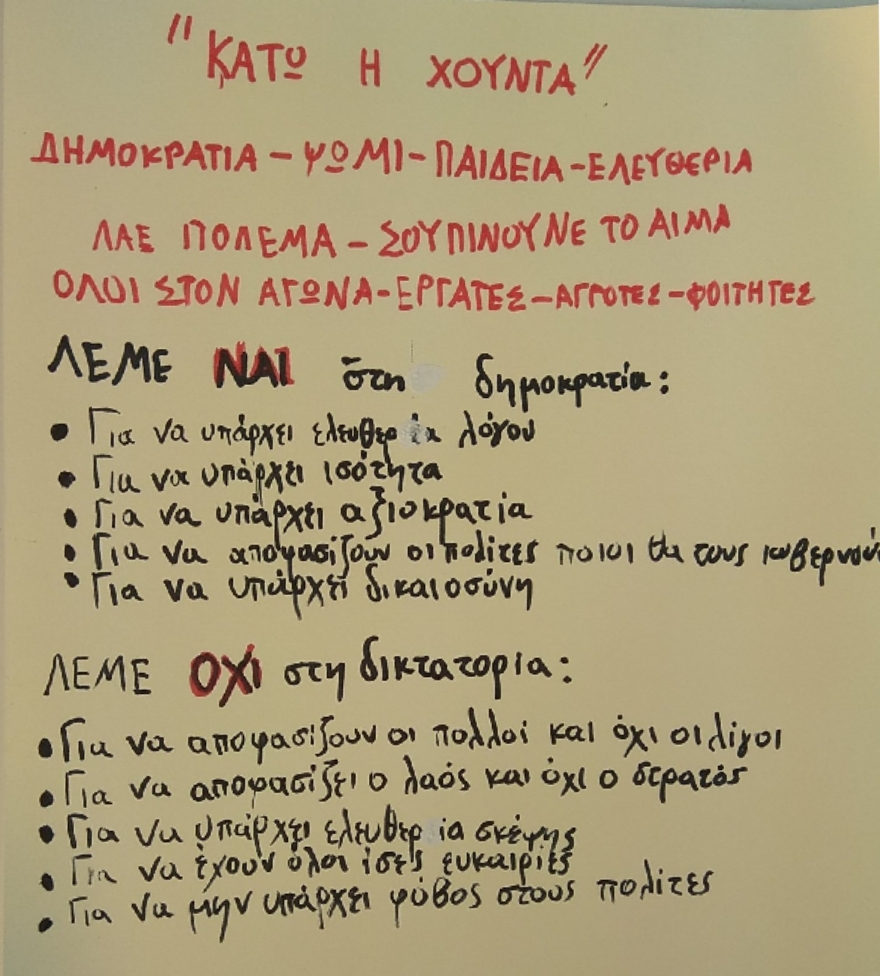 "ΚΑΤΩ Η ΧΟΥΝΤΑ"
ΔΗΜΟΚΡΑΤΙΑ - ΨΩΜΙ - ΠΑΙΔΕΙΑ - ΕΛΕΥΘΕΡΙΑ
ΛΑΕ ΠΟΛΕΜΑ - ΣΟΥ ΠΙΝΟΥΝΕ ΤΟ ΑΙΜΑ
ΟΛΟΙ ΣΤΟΝ ΑΓΩΝΑ - ΕΡΓΑΤΕΣ - ΑΓΡΟΤΕΣ - ΦΟΙΤΗΤΕΣ
ΛΕΜΕ ΝΑΙ στη δημοκρατία:
• Για να υπάρχει ελευθερία λόγου
• Για να υπάρχει ισότητα
• Για να υπάρχει αξιοκρατία
• Για να αποφασίζουν οι πολίτες ποιοι θα τους κυβερνούν
• Για να υπάρχει δικαιοσύνη
ΛΕΜΕ ΟΧΙ στη δικτατορία:
• Για να αποφασίζουν οι πολλοί και όχι οι λίγοι
• Για να αποφασίζει ο λαός και όχι ο στρατός
• Για να υπάρχει ελευθερία σκέψης
• Για να έχουν όλοι ίσες ευκαιρίες
• Για να μην υπάρχει φόβος στους πολίτες